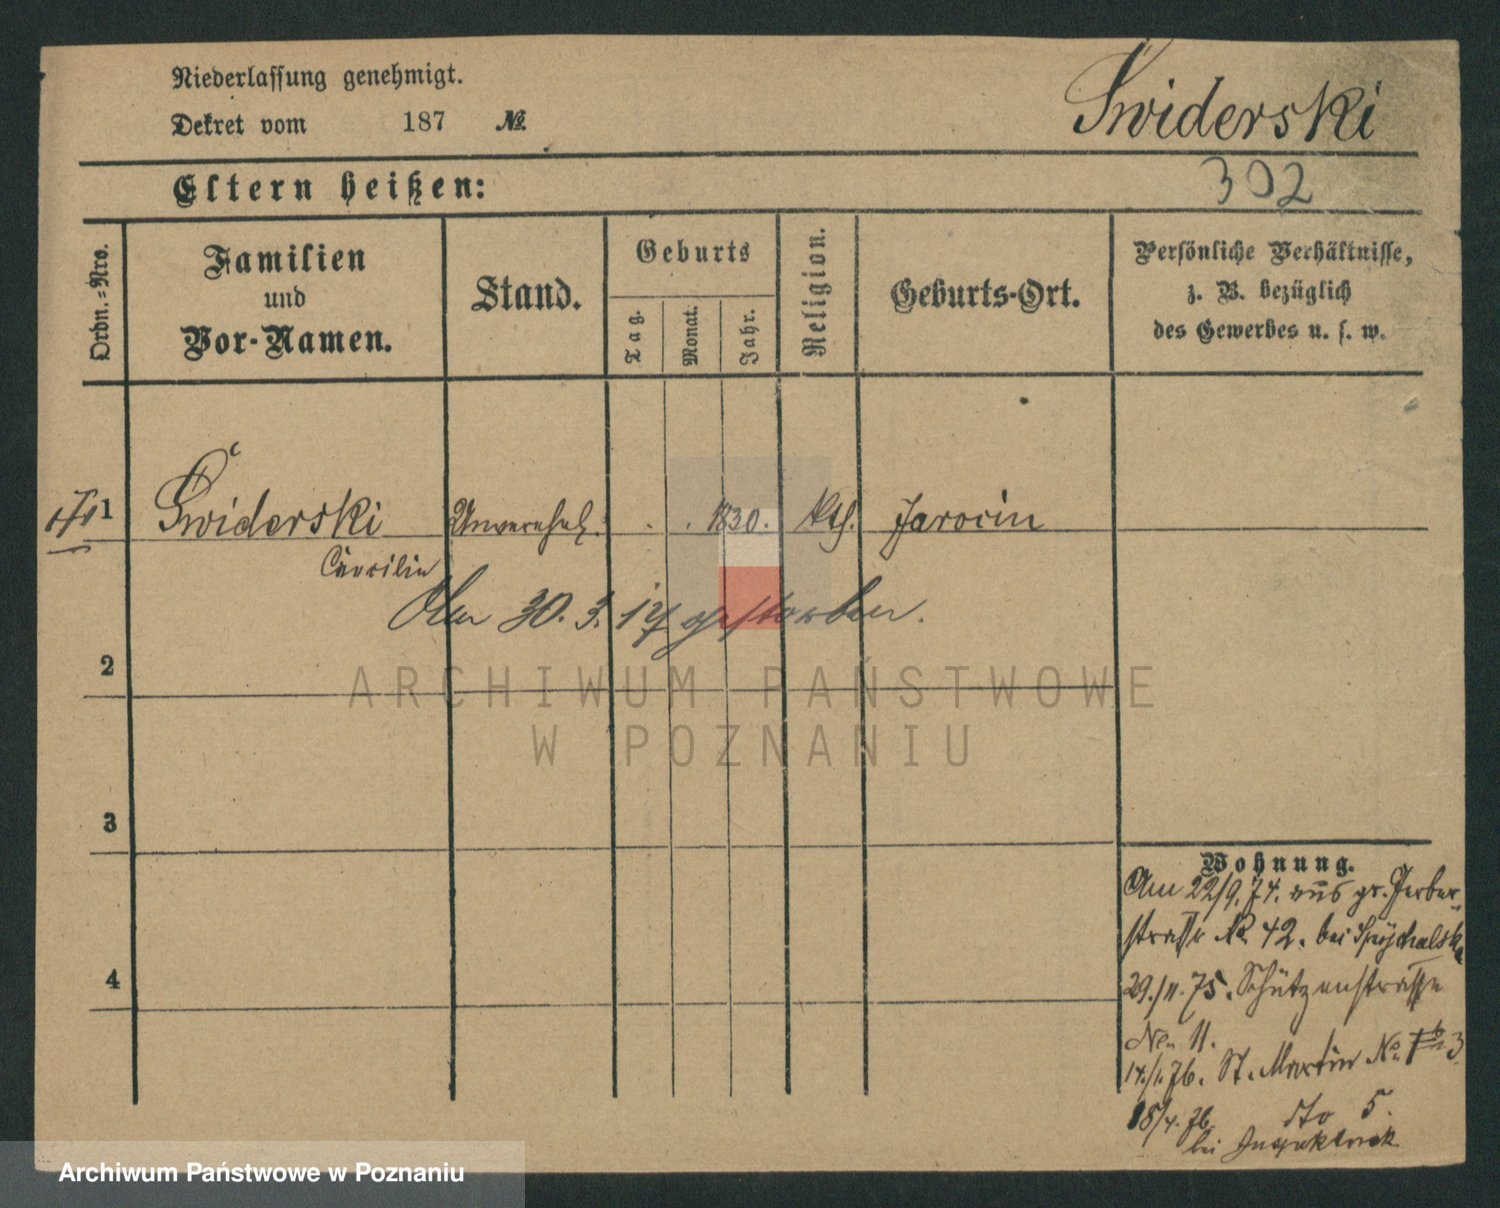 Niederlassung genehmigt.
Dekret vom 187 №
Świderski
302
Eltern heißen:
Ordn.-Nro.
Familien
und
Vor-Namen.
Stand.
Geburts
Tag.
Monat.
Jahr.
Religion.
Geburts-Ort.
Persönliche Verhältnisse,
z. B. bezüglich
des Gewerbes u. s. w.
1 Świderski Unverehel. . . 1830. kth. Jarocin
Cäcilia
Am 30. 3. 17 gestorben.
2
3
4
Wohnung.
Am 22/9. 74. aus gr. Gerber-
straße No 42. bei
29./11. 75. Schützenstraße
No 11.
14./1. 76. St. Martin No 3
18/4. 76. dto 5.
bei
ARCHIWUM PAŃSTWOWE
W POZNANIU
Archiwum Państwowe w Poznaniu